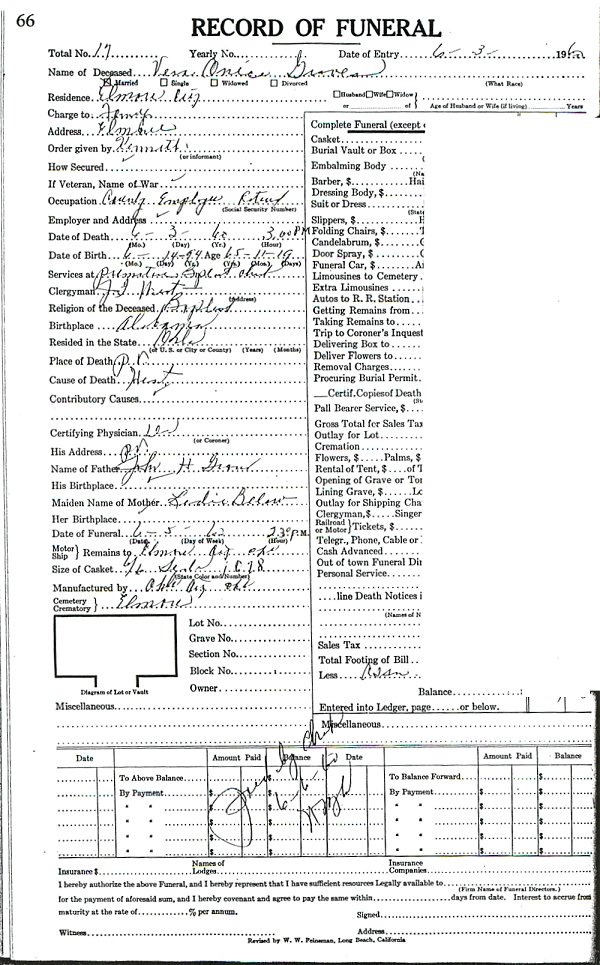 66
RECORD OF FUNERAL
Total No. 17 Yearly No. Date of Entry 6-3- 1960
Name of Deceased
Married Single Widowed Divorced (What Race)
Residence Elmore City Husband Wife Widow or of Age of Husband or Wife (if living) Years
Charge to
Address Elmore
Order given by Kenneth
(or informant)
How Secured
If Veteran, Name of War
Occupation County Employee Retired
(Social Security Number)
Employer and Address
Date of Death 6-3-60 3:00 P.M.
(Mo.) (Day) (Yr.) (Hour)
Date of Birth 6-14-94 Age 65-11-19
(Mo.) (Day) (Yr.) (Yrs.) (Mo.) (Days)
Services at Primative Baptist
Clergyman
(Address)
Religion of the Deceased Baptist
Birthplace Alabama
Resided in the State Okla
(or U. S. or City or County) (Years) (Months)
Place of Death P.V.
Cause of Death Heart
Contributory Causes
Certifying Physician
(or Coroner)
His Address P.V.
Name of Father John H
His Birthplace
Maiden Name of Mother
Her Birthplace
Date of Funeral 6-5-60 2:30 P.M.
(Date) (Day of Week) (Hour)
Motor Ship } Remains to Elmore City Okla
Size of Casket
(State Color and Number)
Manufactured by
Cemetery Crematory } Elmore
Diagram of Lot or Vault
Lot No.
Grave No.
Section No.
Block No.
Owner
Miscellaneous
Complete Funeral (except
Casket
Burial Vault or Box
Embalming Body
Barber, $ Hai
Dressing Body, $
Suit or Dress
(State
Slippers, $
Folding Chairs, $
Candelabrum, $
Door Spray, $
Funeral Car, $
Limousines to Cemetery
Extra Limousines
Autos to R. R. Station
Getting Remains from
Taking Remains to
Trip to Coroner's Inquest
Delivering Box to
Deliver Flowers to
Removal Charges
Procuring Burial Permit
Certif. Copies of Death
Pall Bearer Service, $
Gross Total for Sales Tax
Outlay for Lot
Cremation
Flowers, $ Palms, $
Rental of Tent, $ of T
Opening of Grave or To
Lining Grave, $ Lo
Outlay for Shipping Cha
Clergyman, $ Singer
Railroad or Motor } Tickets, $
Telegr., Phone, Cable or
Cash Advanced
Out of town Funeral Dir
Personal Service
line Death Notices i
(Names of N
Sales Tax
Total Footing of Bill
Less
Balance
Entered into Ledger, page or below.
Miscellaneous
Date Amount Paid Balance Date Amount Paid Balance
To Above Balance $ To Balance Forward $
By Payment $ $ By Payment $ $
" " $ $ " " $ $
" " $ $ " " $ $
" " $ $ " " $ $
" " $ $ " " $ $
6-6-60
Insurance $ Names of Lodges Insurance Companies
I hereby authorize the above Funeral, and I hereby represent that I have sufficient resources Legally available to
(Firm Name of Funeral Directors.)
for the payment of aforesaid sum, and I hereby covenant and agree to pay the same within days from date. Interest to accrue from
maturity at the rate of % per annum. Signed
Witness Address
Revised by W. W. Feineman, Long Beach, California